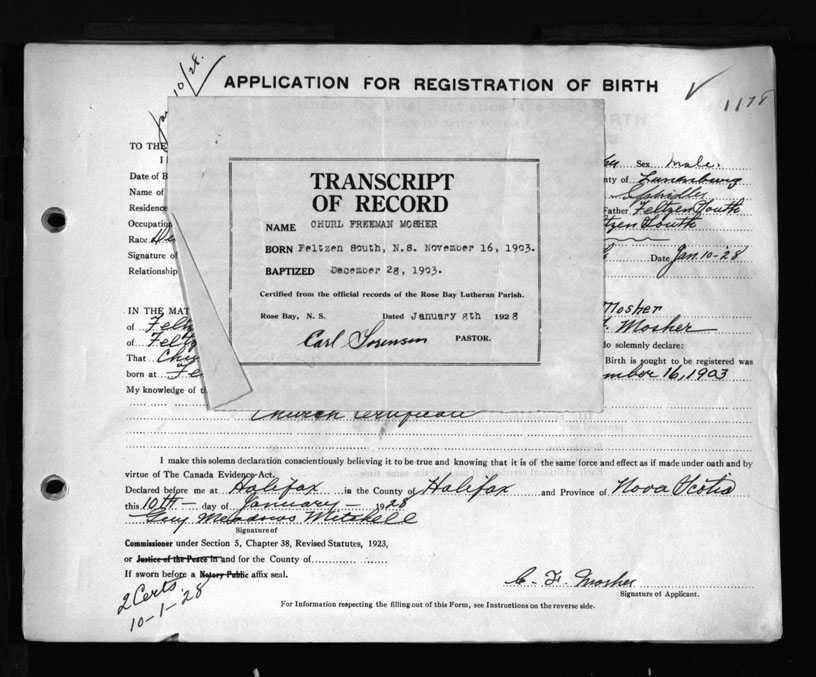 Jan 10/28.
APPLICATION FOR REGISTRATION OF BIRTH
1178
TO THE
Sex male.
Date of B
nty of Lunenburg
Name of
Residence
Father Feltzen South
Occupation
tzen South
Race
Signature of
Date Jan. 10-28
Relationship
TRANSCRIPT
OF RECORD
NAME CHURL FREEMAN MOSHER
BORN Feltzen South, N.S. November 16, 1903.
BAPTIZED December 28, 1903.
Certified from the official records of the Rose Bay Lutheran Parish.
Rose Bay, N. S. Dated January 8th 1928
Carl Sorensen PASTOR.
IN THE MAT
Mosher
of Feltz
Mosher
of Feltz
do solemnly declare:
That Chu
Birth is sought to be registered was
born at Fe
mber 16, 1903
My knowledge of t
Church Certificate
I make this solemn declaration conscientiously believing it to be true and knowing that it is of the same force and effect as if made under oath and by
virtue of The Canada Evidence Act.
Declared before me at Halifax is the County of Halifax and Province of Nova Scotia
this 10th day of January 1928
Guy Meadows Mitchell
Signature of
Commissioner under Section 5, Chapter 38, Revised Statutes, 1923,
or Justice of the Peace in and for the County of
If sworn before a Notary Public affix seal.
2 Certs
10-1-28
C. F. Mosher
Signature of Applicant.
For Information respecting the filling out of this Form, see Instructions on the reverse side.